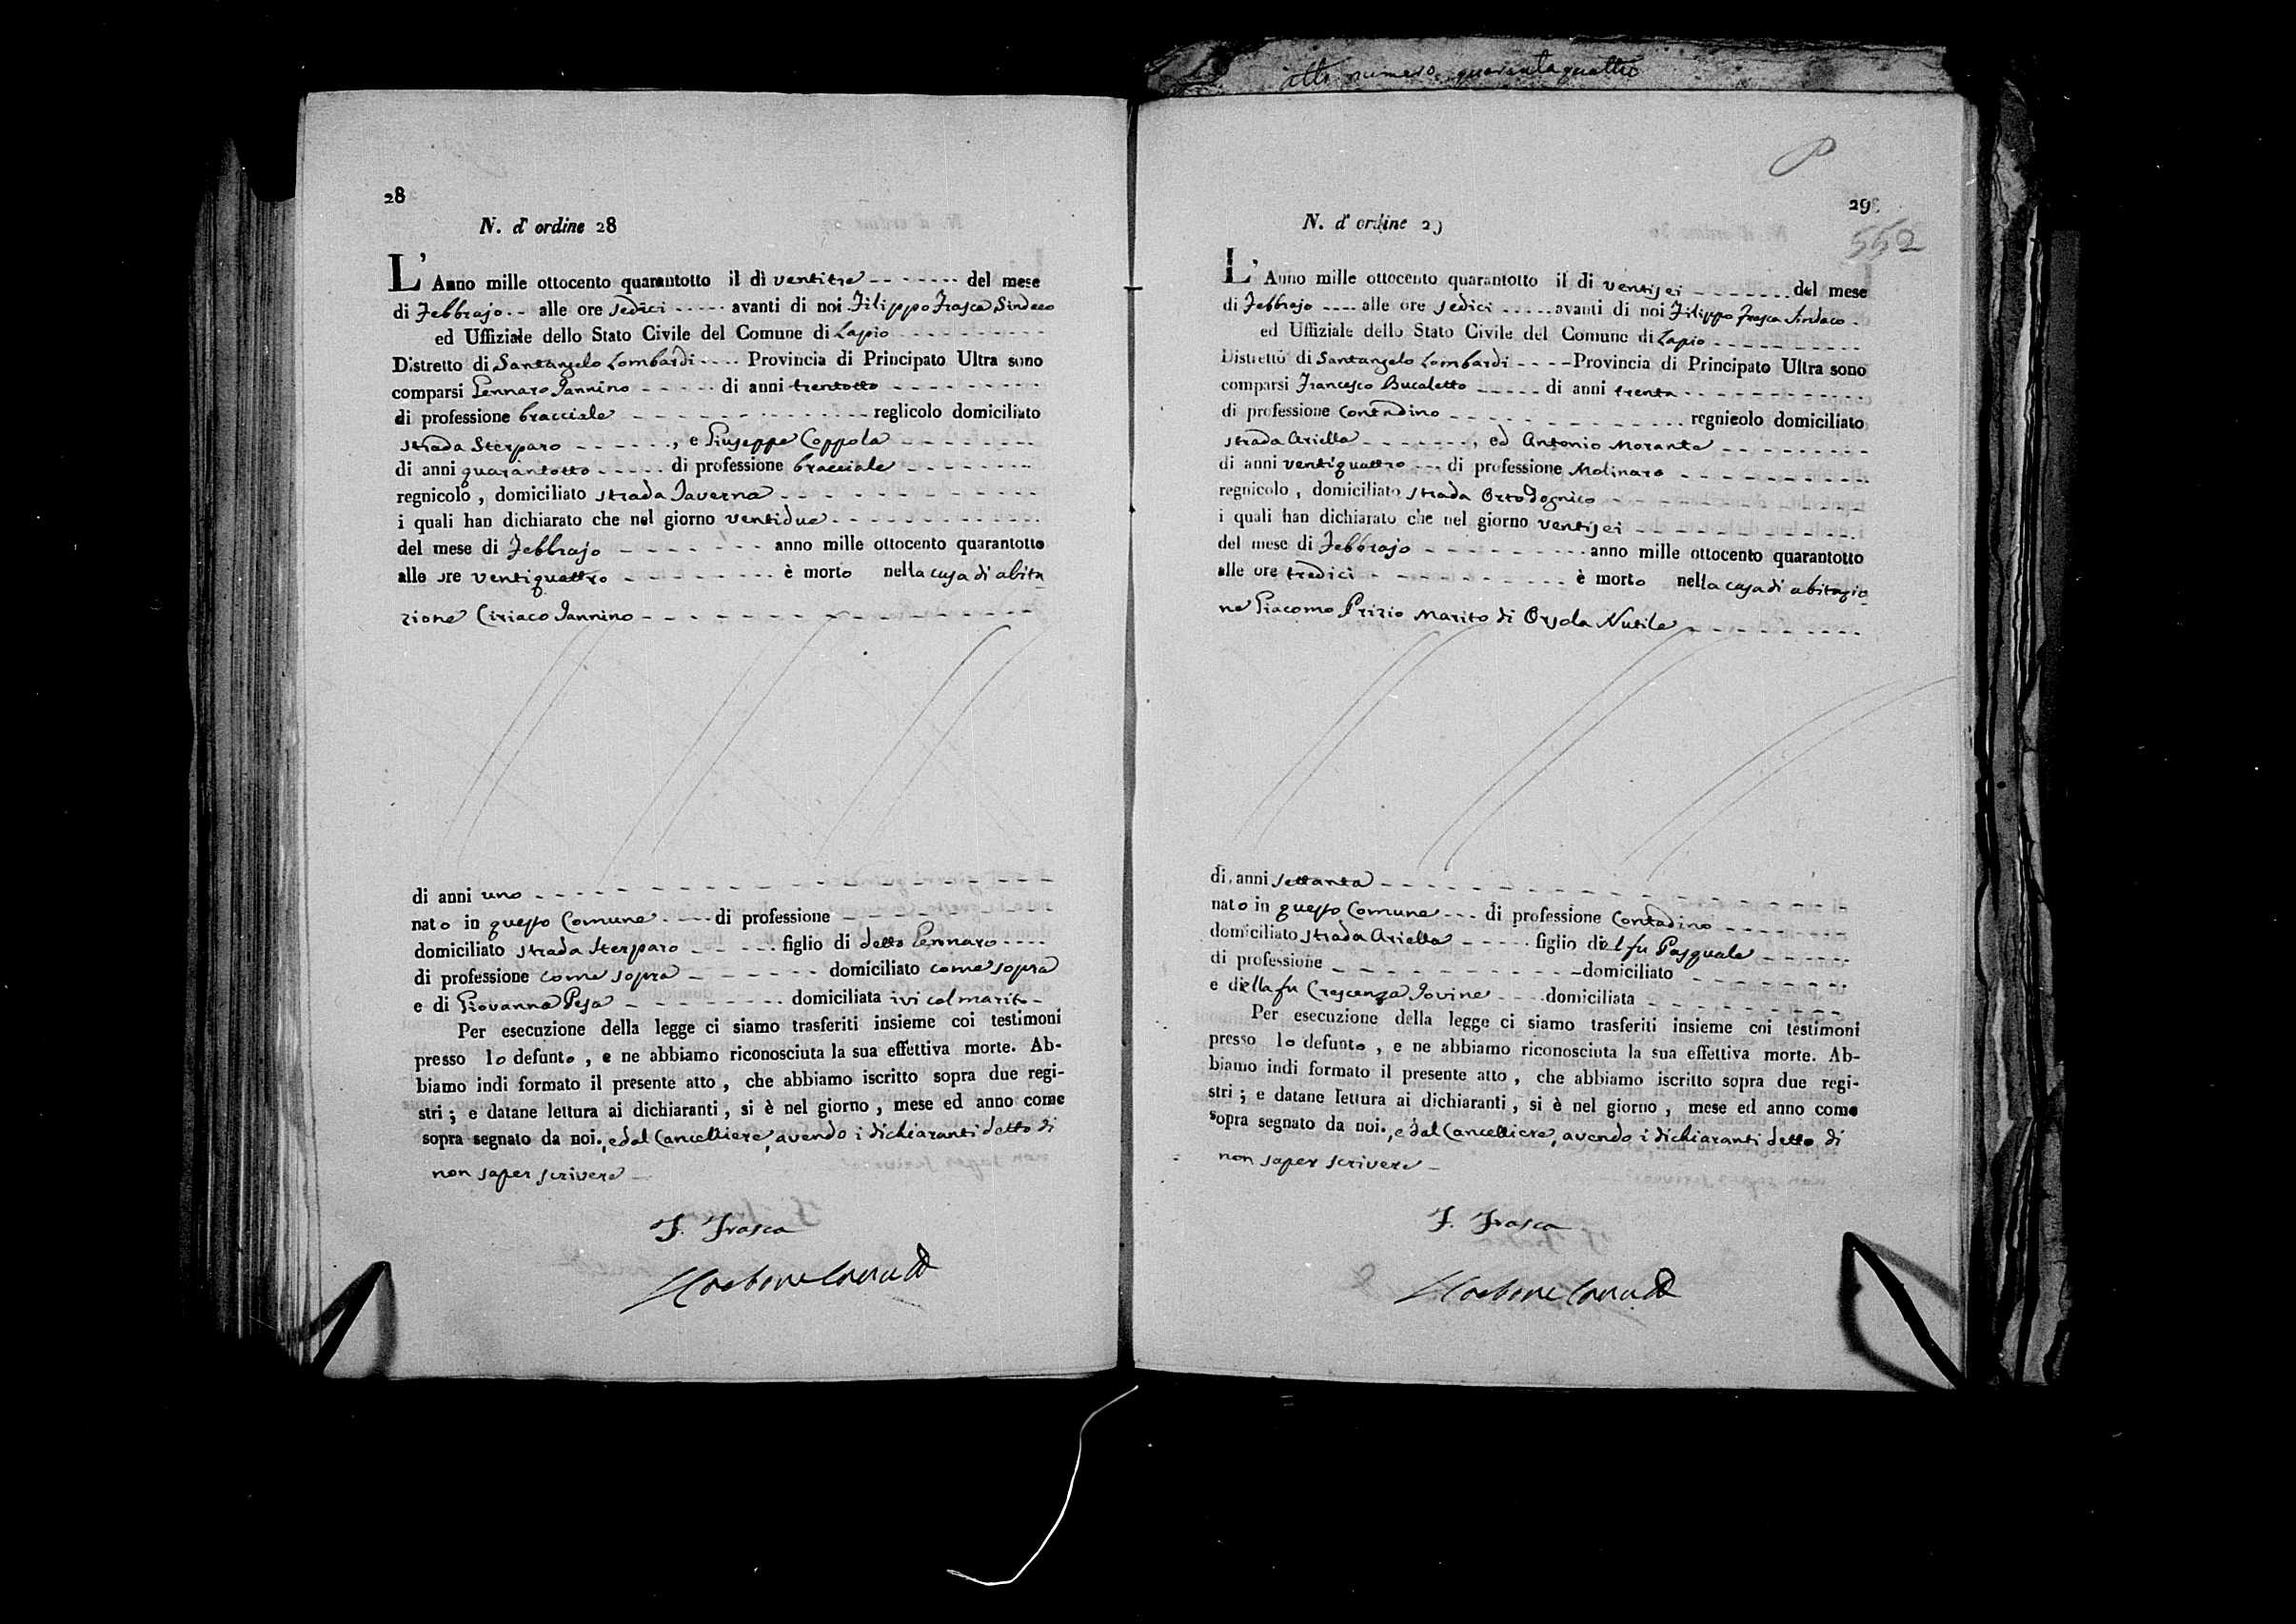 28
N. d' ordine 28
L' Anno mille ottocento quarantotto il dì ventitre del mese
di Febbrajo alle ore sedici avanti di noi Filippo Frasca Sindaco
ed Uffiziale dello Stato Civile del Comune di Lapio
Distretto di Santangelo Lombardi Provincia di Principato Ultra sono
comparsi Gennaro Iannino di anni trentotto
di professione bracciale reglicolo domiciliato
strada Sterparo , e Giuseppe Coppola
di anni quarantotto di professione bracciale
regnicolo , domiciliato strada Taverna
i quali han dichiarato che nel giorno ventidue
del mese di Febbrajo anno mille ottocento quarantotto
alle ore ventiquattro è morto nella casa di abita
zione Ciriaco Iannino
di anni uno
nato in questo Comune di professione
domiciliato strada Sterparo figlio di detto Gennaro
di professione come sopra domiciliato come sopra
e di Giovanna Pesa domiciliata ivi col marito
Per esecuzione della legge ci siamo trasferiti insieme coi testimoni
presso lo defunto , e ne abbiamo riconosciuta la sua effettiva morte. Ab-
biamo indi formato il presente atto , che abbiamo iscritto sopra due regi-
stri ; e datane lettura ai dichiaranti , si è nel giorno , mese ed anno come
sopra segnato da noi., e dal Cancelliere, avendo i dichiaranti detto di
non saper scrivere
F. Frasca
atto numero quarantaquattro
29
552
N. d' ordine 29
L' Anno mille ottocento quarantotto il di ventisei del mese
di Febbrajo alle ore sedici avanti di noi Filippo Frasca Sindaco
ed Uffiziale dello Stato Civile del Comune di Lapio
Distretto di Santangelo Lombardi Provincia di Principato Ultra sono
comparsi Francesco Bucaletto di anni trenta
di professione Contadino regnicolo domiciliato
strada Ariella , ed Antonio Morante
di anni ventiquattro di professione Molinaro
regnicolo , domiciliato strada Ortodognico
i quali han dichiarato che nel giorno ventisei
del mese di Febbrajo anno mille ottocento quarantotto
alle ore tredici è morto nella casa di abitazio
ne Giacomo Prizio Marito di Orsola Nutile
di anni settanta
nato in questo Comune di professione Contadino
domiciliato strada Ariella figlio del fu Pasquale
di professione domiciliato
e della fu Crescenza Iovine domiciliata
Per esecuzione della legge ci siamo trasferiti insieme coi testimoni
presso lo defunto , e ne abbiamo riconosciuta la sua effettiva morte. Ab-
biamo indi formato il presente atto , che abbiamo iscritto sopra due regi-
stri ; e datane lettura ai dichiaranti , si è nel giorno , mese ed anno come
sopra segnato da noi., e dal Cancelliere, avendo i dichiaranti detto di
non saper scrivere
F. Frasca